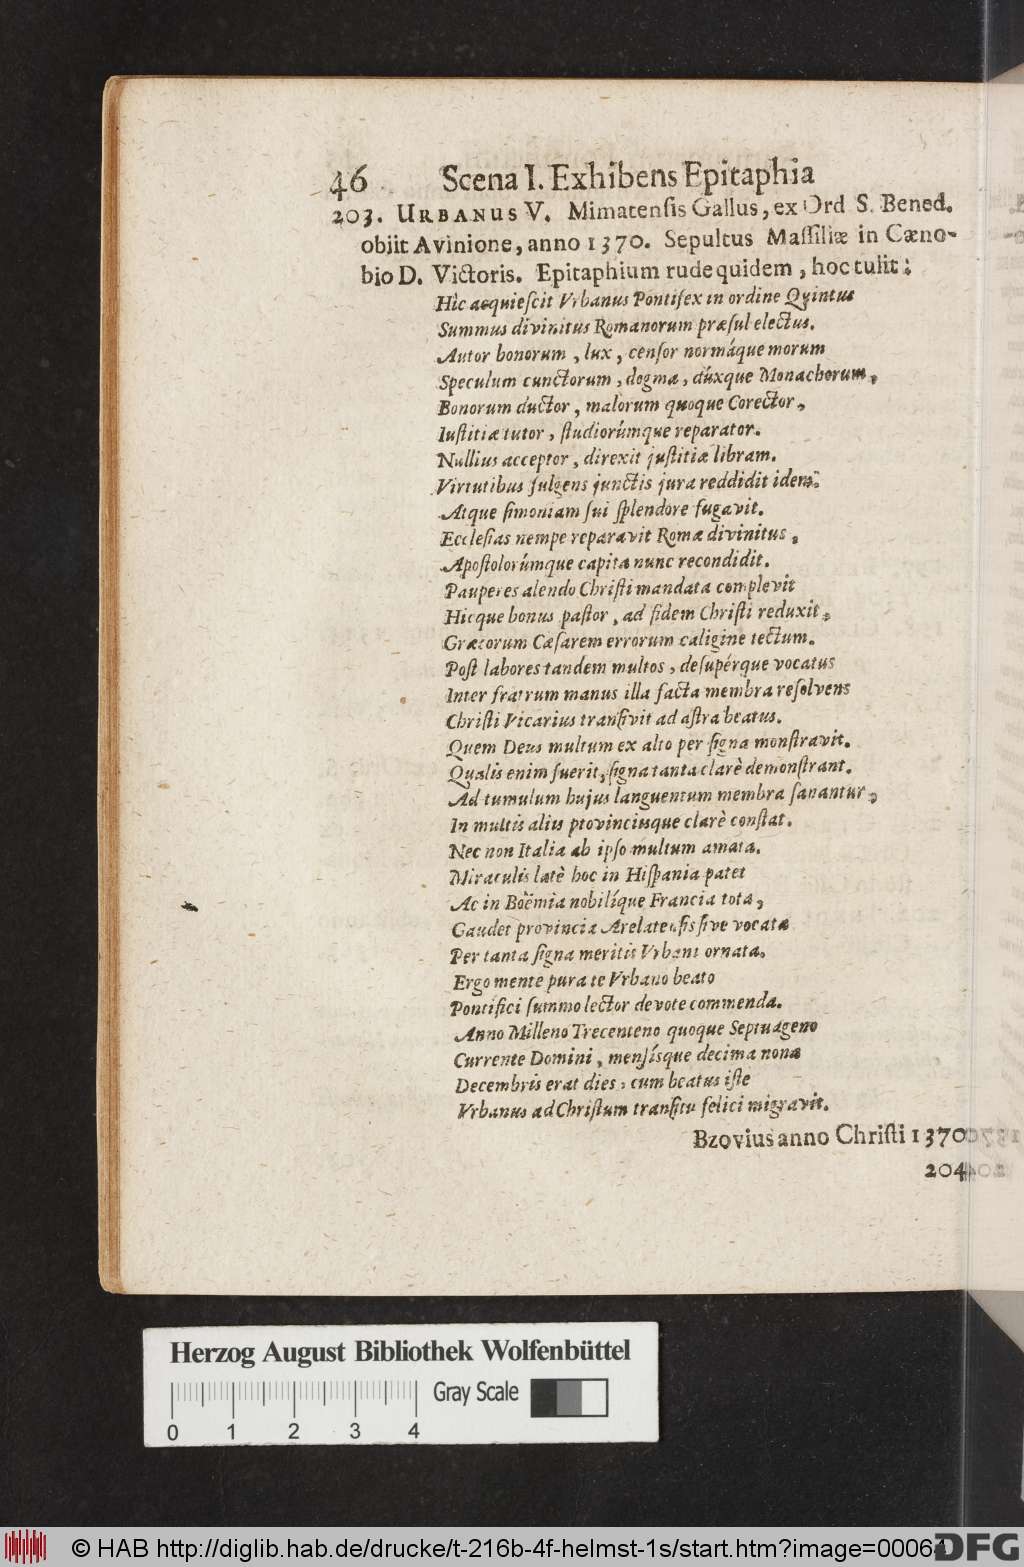 46 Scena I. Exhibens Epitaphia
203. URBANUS V. Mimatenſis Gallus, ex Ord S. Bened.
obiit Avinione, anno 1370. Sepultus Maſſiliæ in Cæno-
bio D. Victoris. Epitaphium rude quidem, hoc tulit:
Hìc acquieſcit Vrbanus Pontifex in ordine Quintus
Summus divinitus Romanorum præſul electus.
Autor bonorum, lux, cenſor normáque morum
Speculum cunctorum, dogma, dúxque Monachorum,
Bonorum ductor, malorum quoque Corector,
Iuſtitiæ tutor, ſtudiorúmque reparator.
Nullius acceptor, direxit juſtitiæ libram.
Virtutibus fulgens junctis jura reddidit idem:
Atque ſimoniam ſui ſplendore fugavit.
Eccleſias nempe reparavit Romæ divinitus,
Apoſtolorúmque capita nunc recondidit.
Pauperes alendo Chriſti mandata complevit
Hicque bonus paſtor, ad fidem Chriſti reduxit,
Græcorum Cæſarem errorum caligine tectum.
Poſt labores tandem multos, deſupérque vocatus
Inter fratrum manus illa facta membra reſolvens
Chriſti Vicarius tranſivit ad aſtra beatus.
Quem Deus multum ex alto per ſigna monſtravit.
Qualis enim fuerit, ſigna tanta clarè demonſtrant.
Ad tumulum hujus languentum membra ſanantur,
In multis aliis provinciisque clarè conſtat.
Nec non Italia ab ipſo multum amata.
Miraculis latè hoc in Hiſpania patet
Ac in Boëmia nobilíque Francia tota,
Gaudet provincia Arelatenſis ſive vocata
Per tanta ſigna meritis Vrbani ornata.
Ergo mente pura te Vrbano beato
Pontifici ſummo lector devote commenda.
Anno Milleno Trecenteno quoque Septuageno
Currente Domini, menſísque decima nona
Decembris erat dies, cum beatus iſte
Vrbanus ad Chriſtum tranſitu felici migravit.
Bzovius anno Chriſti 1370
204
Herzog August Bibliothek Wolfenbüttel
Gray Scale
0 1 2 3 4
© HAB http://diglib.hab.de/drucke/t-216b-4f-helmst-1s/start.htm?image=00064
DFG